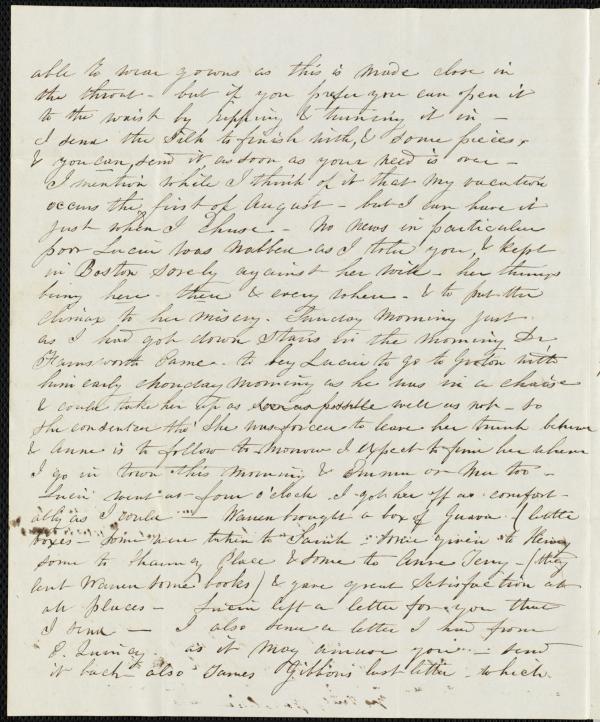 able to wear gowns as this is made close in
the throat - but if you prefer you can open it
to the waist by ripping & turning it in -
I send the Silk to finish with, & some pieces,
& you can send it as soon as your need is over -
I mention while I think of it that my vacation
occurs the first of August - but I can have it
just when I Chuse - No news in particular
poor Lucia was nabbed as I told you, & kept
in Boston sorely against her will - her things
being here - there & every where - & to put the
climax to her misery. Sunday morning just
as I had got down stairs in the morning Dr
Farnsworth Came - to beg Lucia to go to Groton with
him early Monday morning as he was in a chaise
& could take her up as well as not - so
she consented tho' she was forced to leave her trunk behind
& Anne is to follow to morrow I expect to find her when
I go in town this morning & Emma or Mu too -
Lucia went at four o'clock I got her off as comfort-
ably as I could - Warren brought a box of Guava (little
boxes - some were taken to Sarah some given to Henry
some to Chauncy Place & some to Anne Terry - (they
lent Warren some books) & gave great Satisfaction at
all places - Lucia left a letter for you that
I send - I also send a letter I had from
E. Quincy as it may amuse you - send
it back - also James Gibbons last letter - which